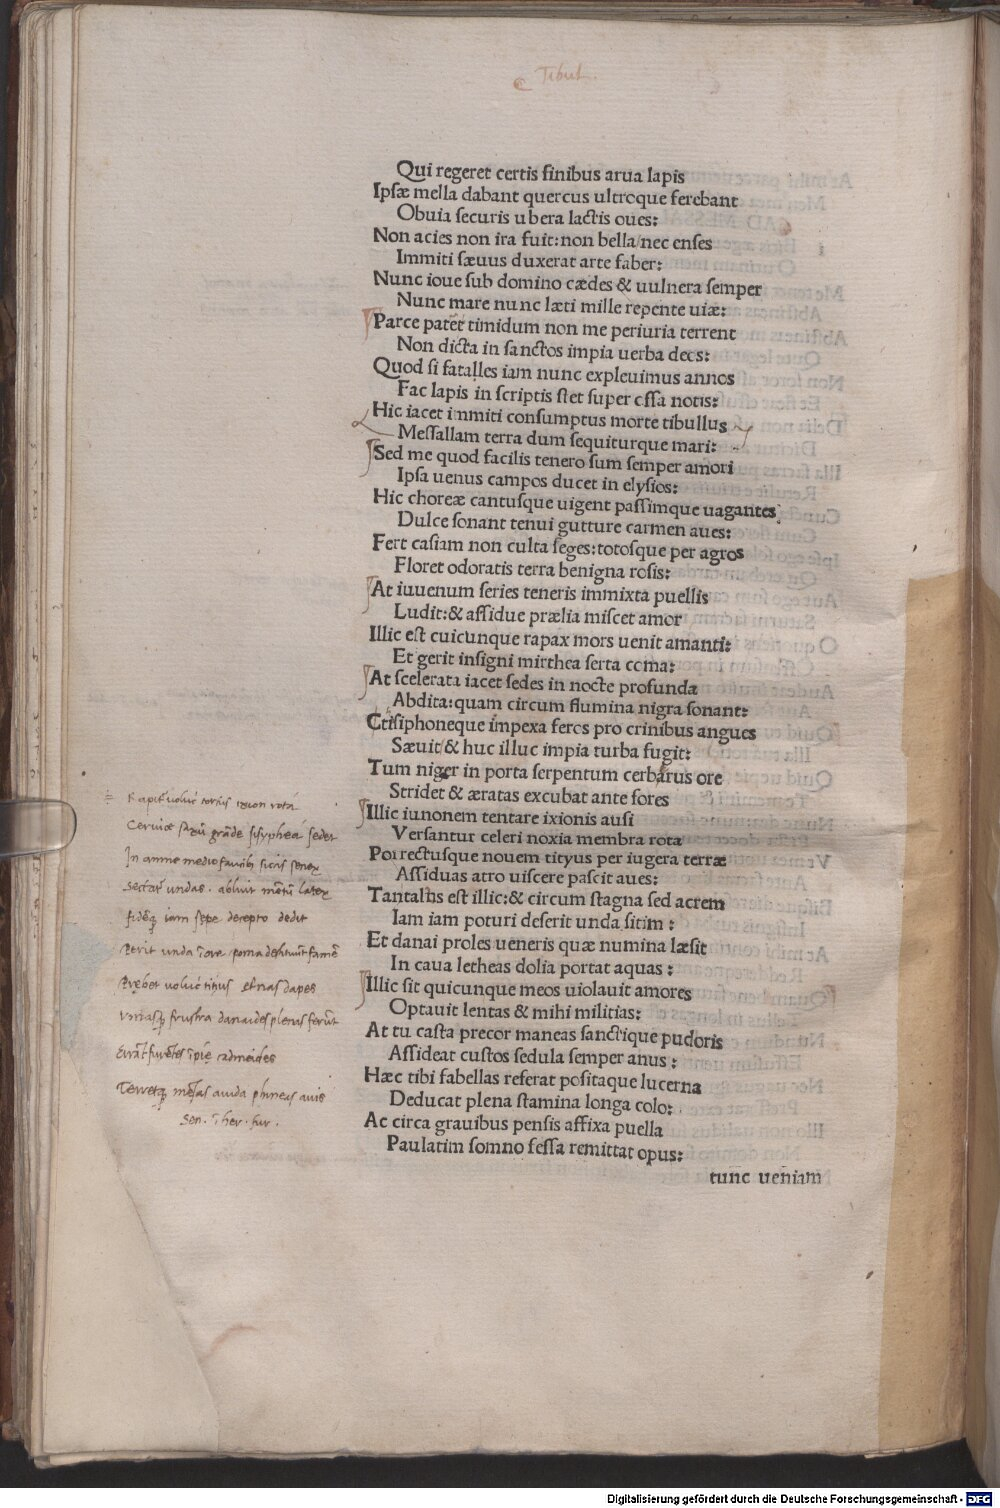 Tibul.
Qui regeret certis finibus arua lapis
Ipsæ mella dabant quercus ultroque ferebant
Obuia securis ubera lactis oues:
Non acies non ira fuit: non bella/nec enses
Immiti sæuus duxerat arte faber:
Nunc ioue sub domino cædes & uulnera semper
Nunc mare nunc læti mille repente uiæ:
Parce pater timidum non me periuria terrent
Non dicta in sanctos impia uerba deos:
Quod si fatalles iam nunc expleuimus annos
Fac lapis in scriptis stet super essa notis:
Hic iacet immiti consumptus morte tibullus
Messallam terra dum sequiturque mari:
Sed me quod facilis tenero sum semper amori
Ipsa uenus campos ducet in elysios:
Hic choreæ cantusque uigent passimque uagantes
Dulce sonant tenui gutture carmen aues:
Fert casiam non culta seges: totosque per agros
Floret odoratis terra benigna rosis:
At iuuenum series teneris immixta puellis
Ludit: & assidue prælia miscet amor
Illic est cuicunque rapax mors uenit amanti:
Et gerit insigni mirthea serta coma:
At scelerata iacet sedes in nocte profunda
Abdita: quam circum flumina nigra sonant:
Ctisiphoneque impexa feros pro crinibus angues
Sæuit/& huc illuc impia turba fugit:
Tum niger in porta serpentum cerbarus ore
Stridet & æratas excubat ante fores
Illic iunonem tentare ixionis ausi
Versantur celeri noxia membra rota
Porrectusque nouem tityus per iugera terræ
Assiduas atro uiscere pascit aues:
Tantalus est illic: & circum stagna sed acrem
Iam iam poturi deserit unda sitim :
Et danai proles ueneris quæ numina læsit
In caua letheas dolia portat aquas :
Illic sit quicunque meos uiolauit amores
Optauit lentas & mihi militias:
At tu casta precor maneas sanctique pudoris
Assideat custos sedula semper anus :
Hæc tibi fabellas referat positaque lucerna
Deducat plena stamina longa colo:
Ac circa grauibus pensis affixa puella
Paulatim somno fessa remittat opus:
tunc ueniam
Rapit uoluc tortus ixion rota
Ceruice saxũ grãde sisyphea sedet
In amne medio faucibꝫ siccis senex
Sectat undas . abluit mẽtũ latex
fidẽqꝫ iam sepe decepto dedit
Perit unda ĩ ore poma destituũt famẽ
Prębet uolucri titius eternas dapes
Vrnasqꝫ frustra danaides plenas ferũt
Errãt furẽtes ĩpię cadmeides
Terretqꝫ mẽsas auida phineas auis
Sen. ĩ her. fur.
Digitalisierung gefördert durch die Deutsche Forschungsgemeinschaft - DFG